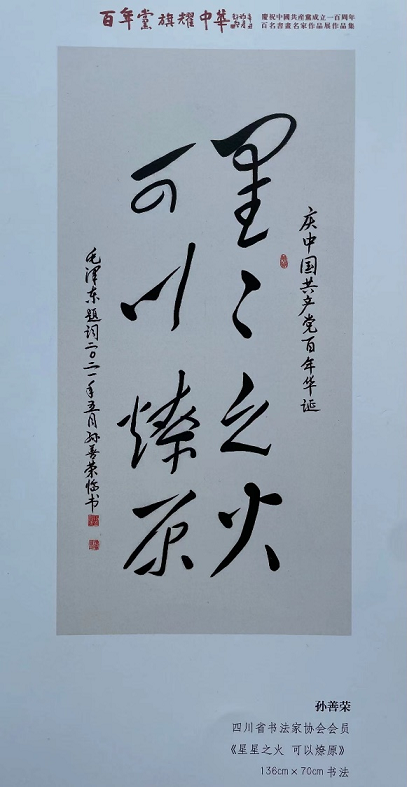 百年黨旗耀中華
慶祝中國共産黨成立一百周年
百名書畫名家作品展作品集
庆中国共产党百年华诞
星〻之火
可以燎原
毛泽东题词二〇二一年五月孙善荣临书
孙善荣
四川省书法家协会会员
《星星之火 可以燎原》
136cm×70cm 书法